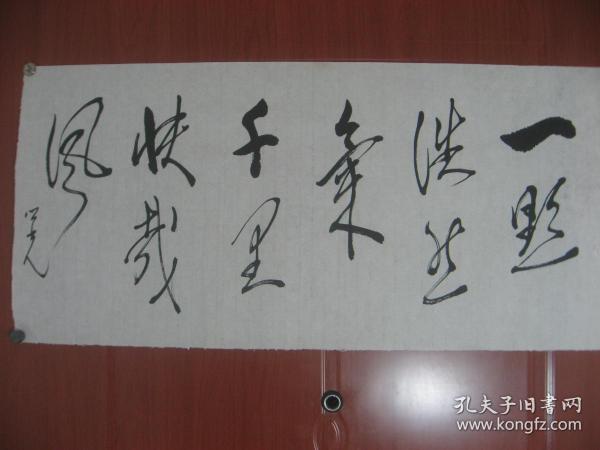 一點
浩然
氣
千里
快哉
風
孔夫子旧書网
www.kongfz.com